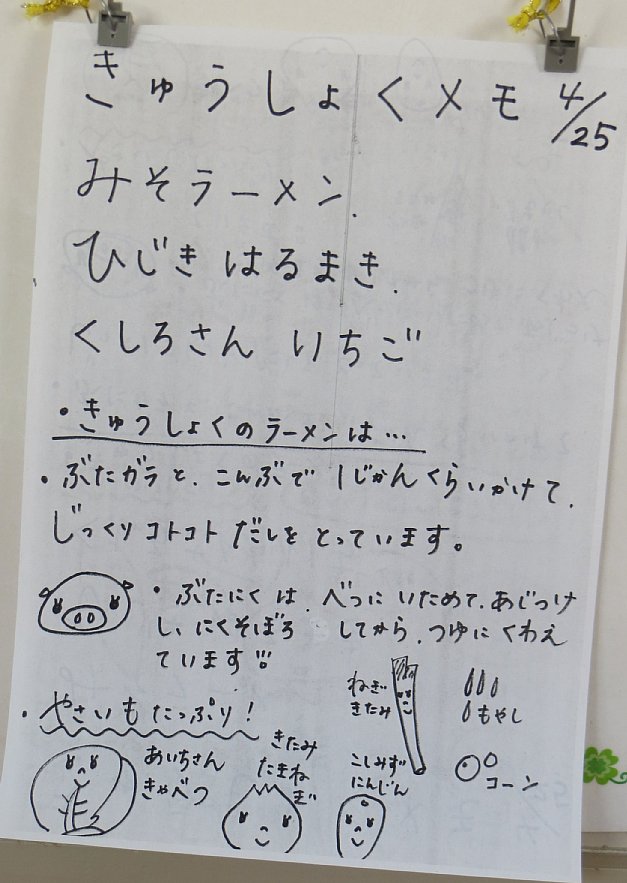 きゅうしょくメモ 4/25
みそラーメン.
ひじき はるまき.
くしろさん いちご
・きゅうしょくのラーメンは…
・ぶたガラと、こんぶで 1じかんくらいかけて、
じっくりコトコト だしを とっています。
・ぶたにくは、べつに いためて、あじつけ
し、にくそぼろ してから、つゆに くわえ
ています!!!
・やさいも たっぷり!
ねぎ
きたみ
もやし
コーン
あいちさん
きゃべつ
きたみ
たまね
ぎ
こしみず
にんじん